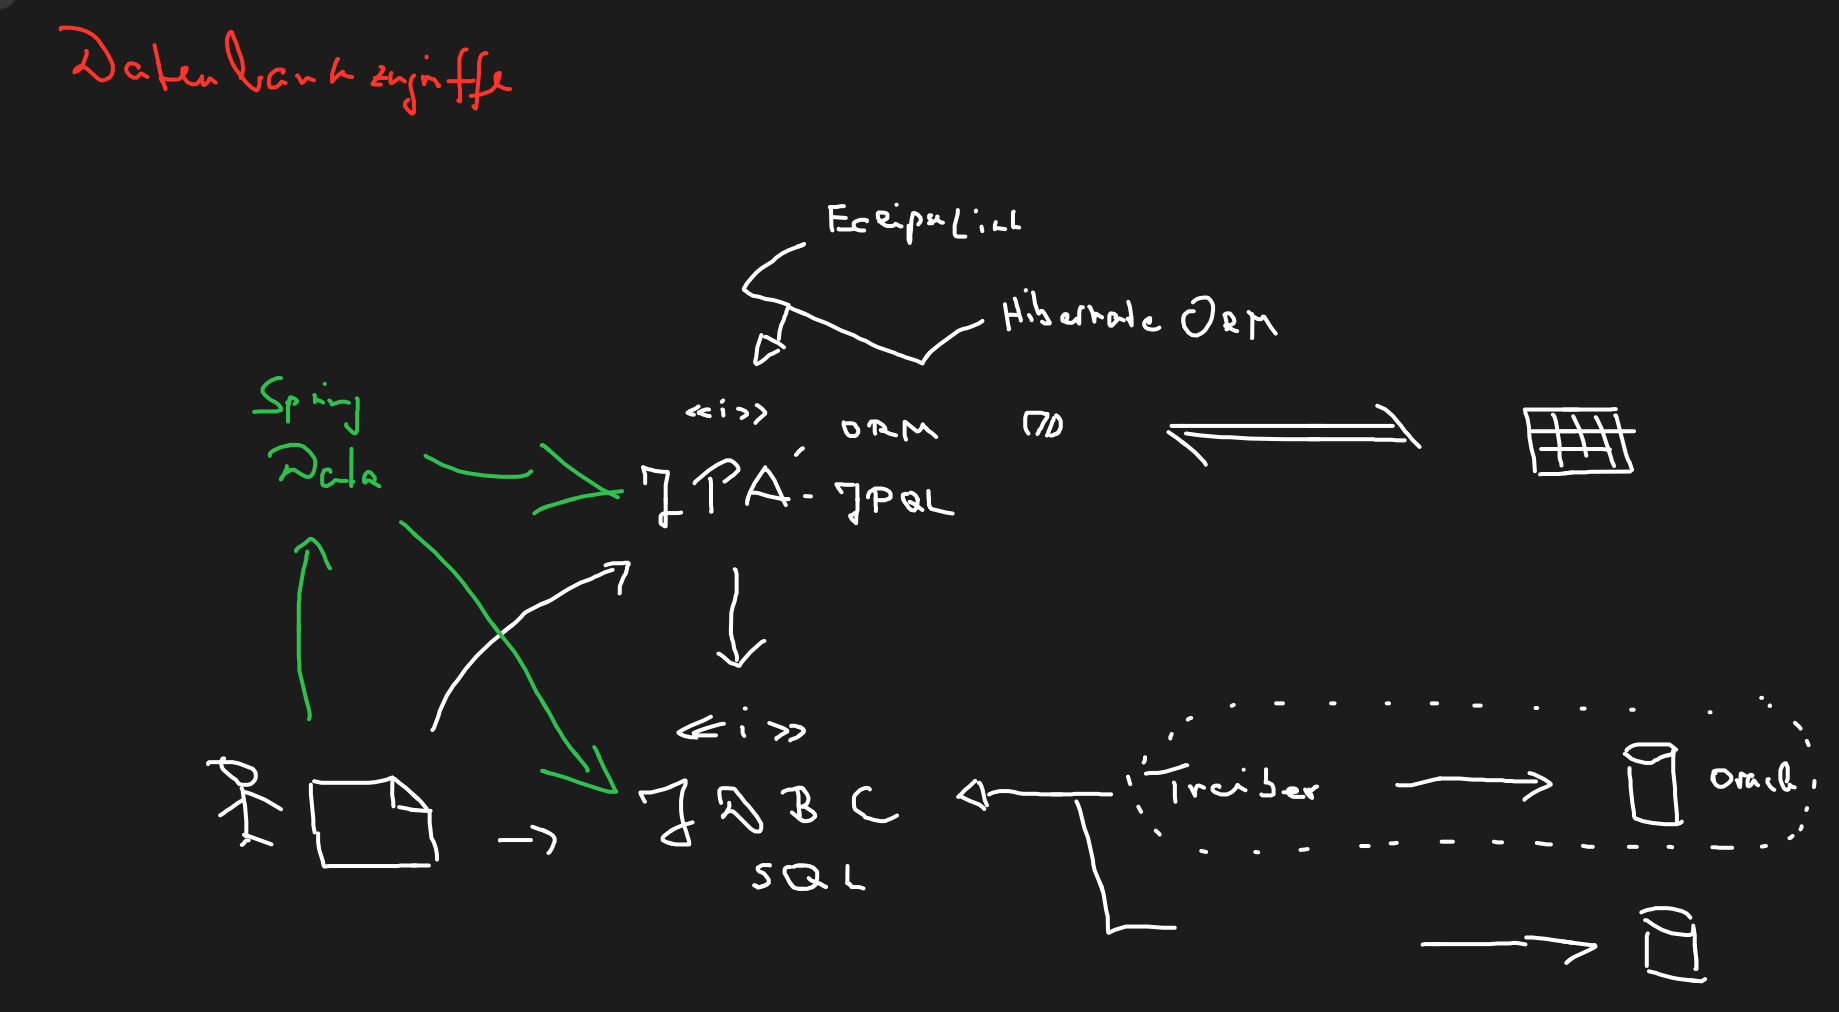 Datenbankzugriffe
EclipseLink
Hibernate ORM
Spring
Data
<<i>>
ORM
JPA - JPQL
<<i>>
JDBC
SQL
Treiber
Oracle